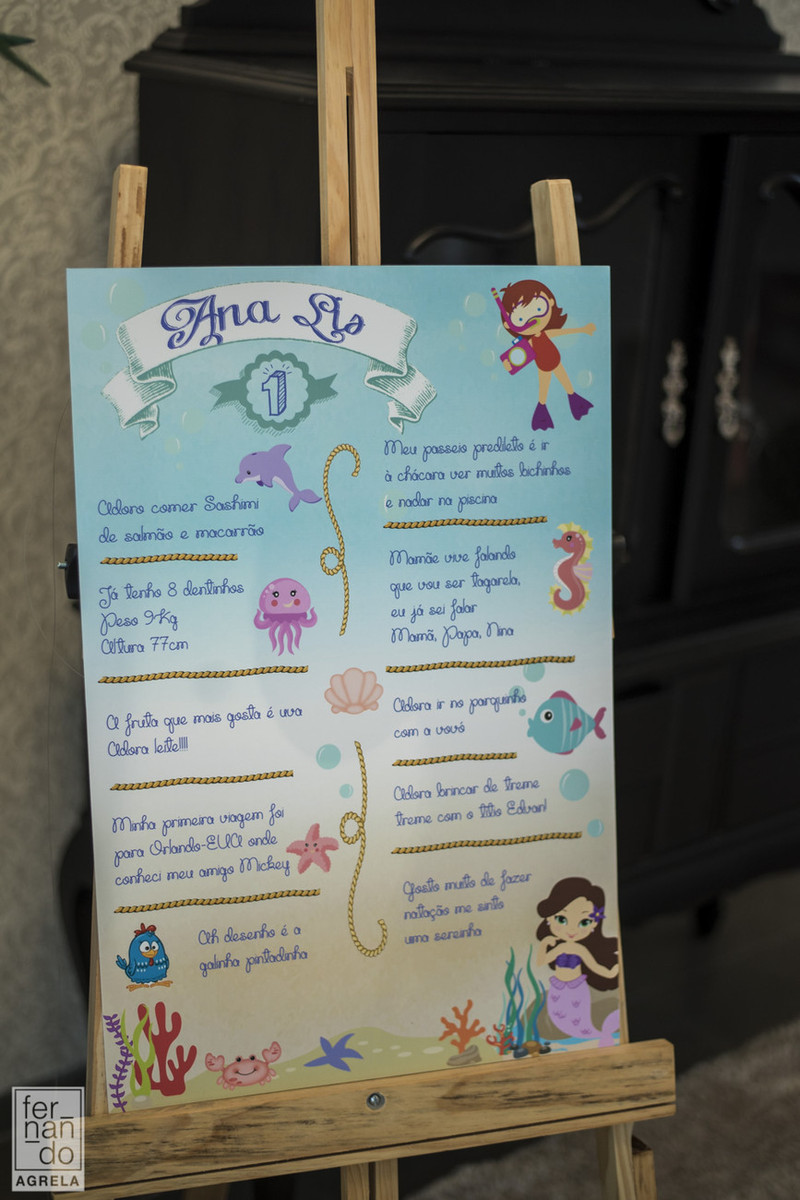 Ana Lis
1
Adoro comer Sashimi
de salmão e macarrão
Já tenho 8 dentinhos
Peso 9Kg
Altura 77cm
A fruta que mais gosta é uva
Adora leite!!!!
Minha primeira viagem foi
para Orlando-EUA onde
conheci meu amigo Mickey
Ah desenho é a
galinha pintadinha
Meu passeio predileto é ir
à chácara ver muitos bichinhos
e nadar na piscina
Mamãe vive falando
que vou ser tagarela,
eu já sei falar
Mamã, Papa, Nina
Adora ir no parquinho
com a vovó
Adora brincar de treme
treme com o titio Edvan!
Gosto muito de fazer
natação me sinto
uma sereinha
fer_
_nan_
_do
AGRELA